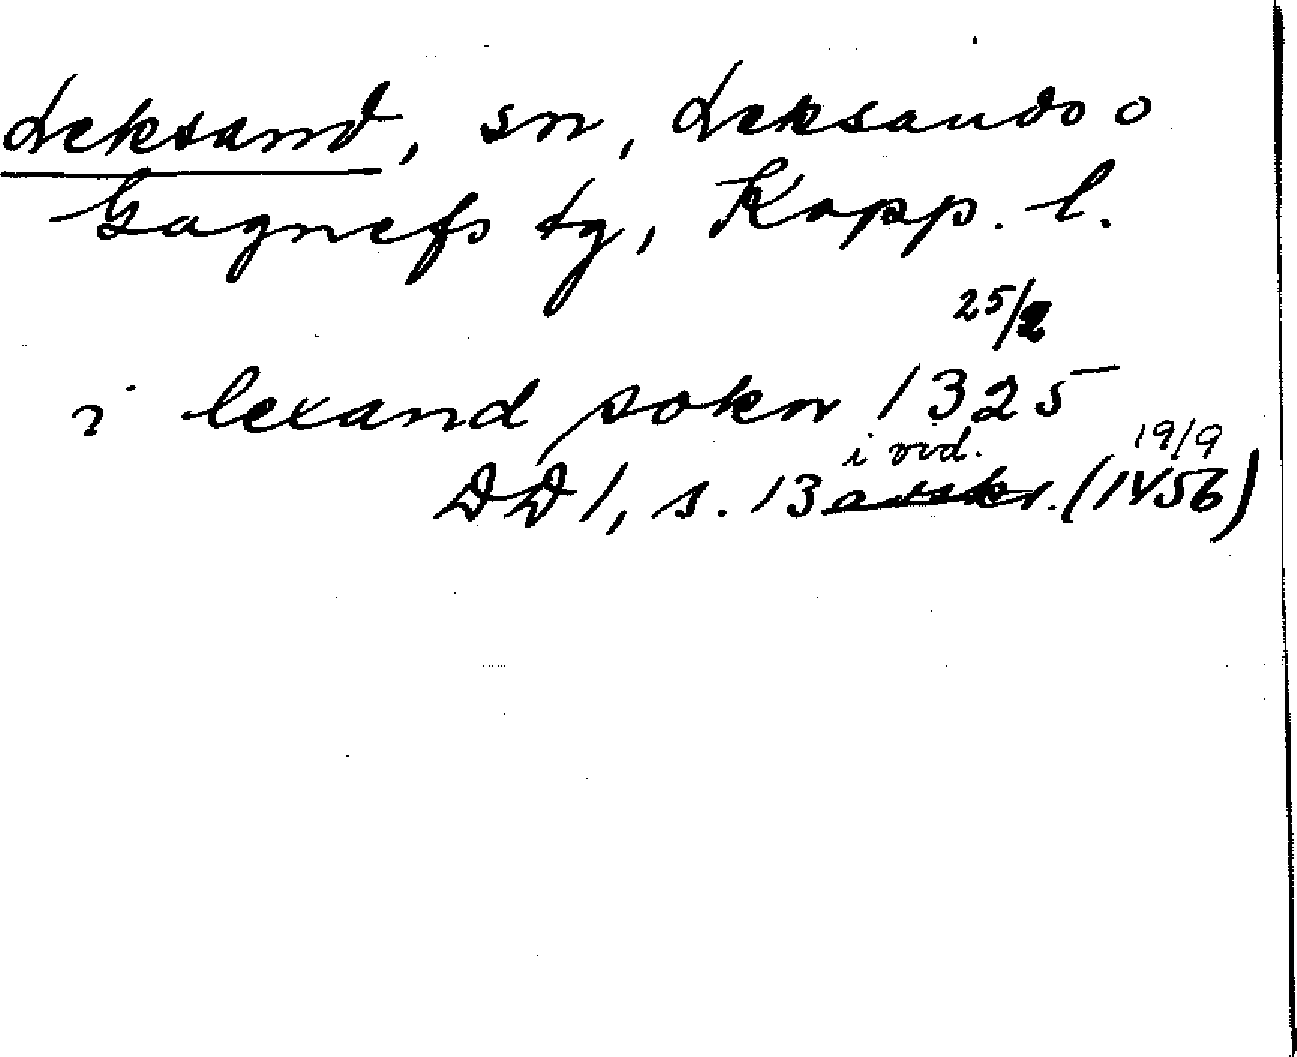 Leksand, sn, Leksands o
Gagnefs tg, Kopp. l.
25/2
i lexand sokn 1325
i vid. 19/9
DD 1, s. 13 avskr. (1456)